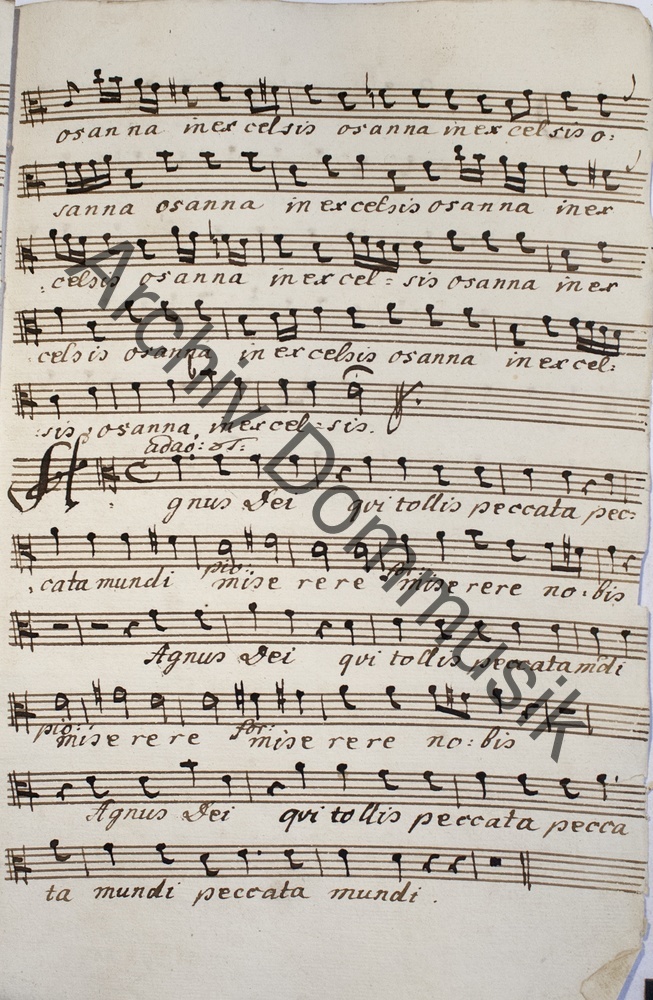 osanna in excelsis osanna in excelsis o:
sanna osanna in excelsis osanna in ex
celsis osanna in excel= sis osanna in ex
celsis osanna in excelsis osanna in excel:
:sis, osanna in excel=sis.
adao:
A C
gnus Dei qvi tollis peccata pec:
pio: for:
cata mundi mise rere miserere no:bis
Agnus Dei qvi tollis peccata mdi
pio: for:
mise re re mise re re no:bis
Agnus Dei qvi tollis peccata pecca
ta mundi peccata mundi.
Archiv Dommusik